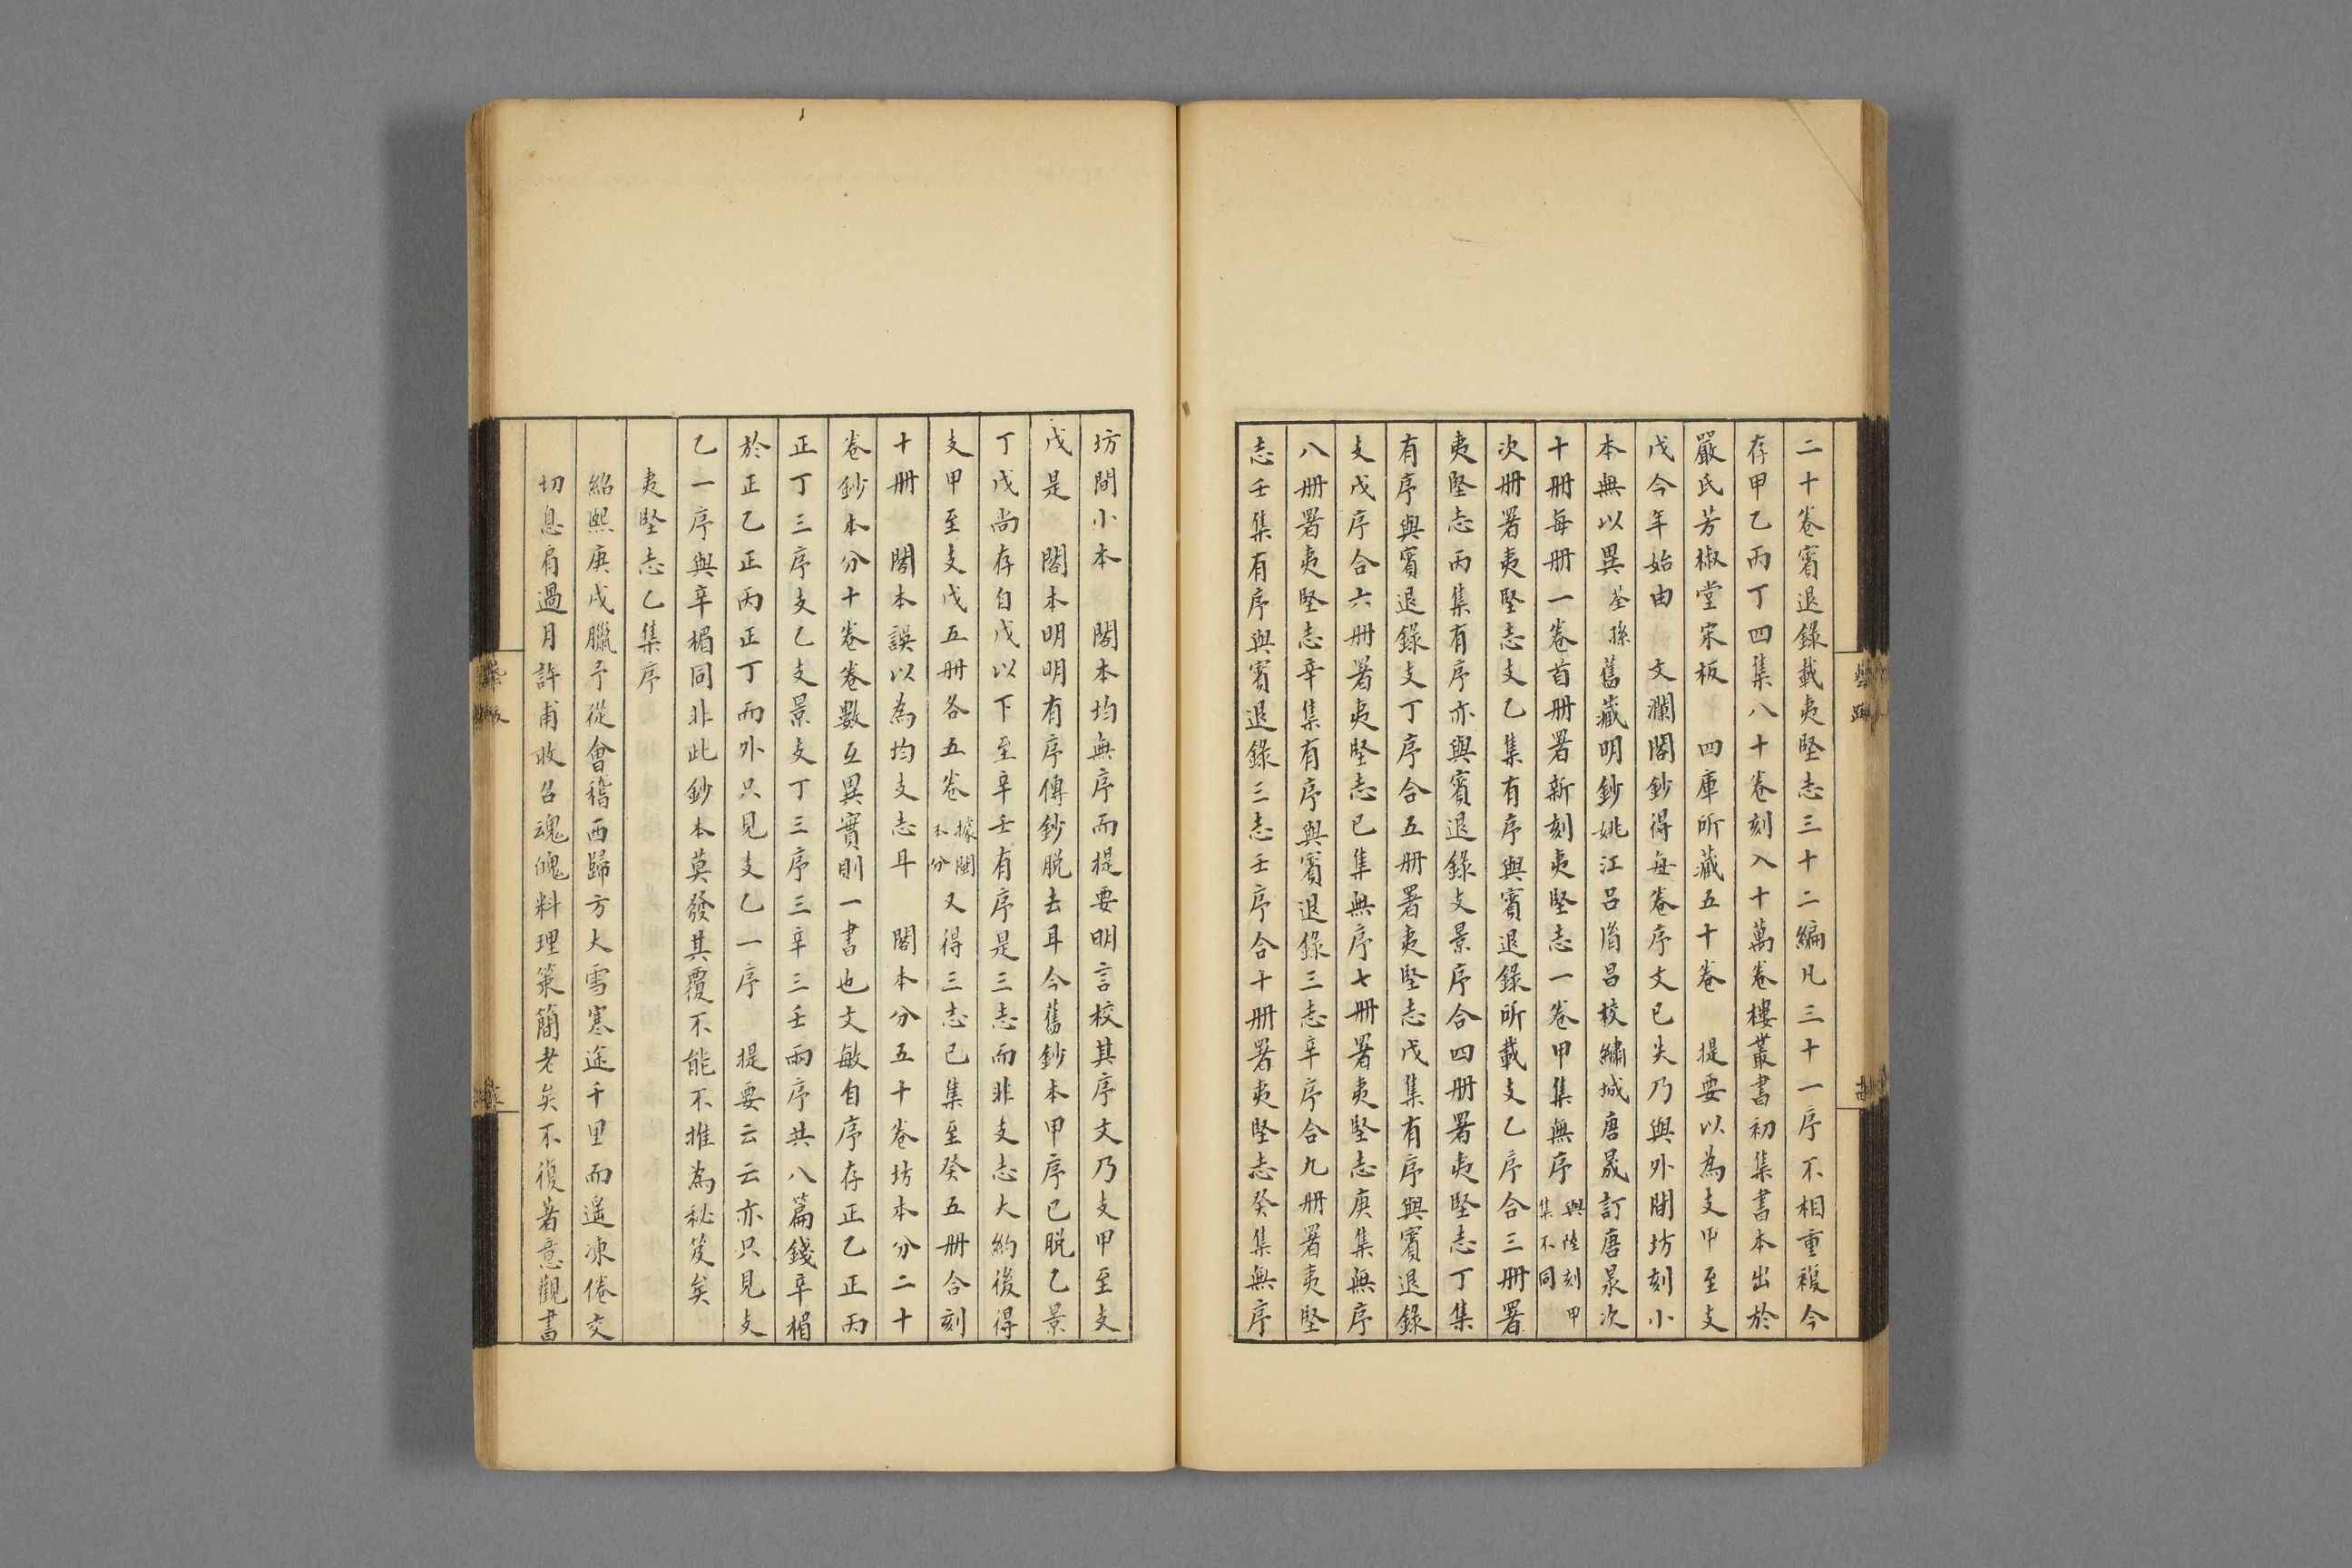 二十卷賓退錄載夷堅志三十二編凡三十一序不相重複今
存甲乙丙丁四集八十卷刻入十萬卷樓叢書初集書本出於
嚴氏芳椒堂宋板　四庫所藏五十卷　提要以為支甲至支
戊今年始由　文瀾閣鈔得每卷序文已失乃與外間坊刻小
本無以異荃孫舊藏明鈔姚江呂胤昌校繡城唐晟訂唐泉次
十册每册一卷首册署新刻夷堅志一卷甲集無序與陸刻甲集不同
次册署夷堅志支乙集有序與賓退錄所載支乙序合三册署
夷堅志丙集有序亦與賓退錄支景序合四册署夷堅志丁集
有序與賓退錄支丁序合五册署夷堅志戊集有序與賓退錄
支戊序合六册署夷堅志已集無序七册署夷堅志庚集無序
八册署夷堅志辛集有序與賓退錄三志辛序合九册署夷堅
志壬集有序與賓退錄三志壬序合十册署夷堅志癸集無序
坊間小本　閣本均無序而提要明言校其序文乃支甲至支
戊是　閣本明明有序傳鈔脱去耳今舊鈔本甲序已脱乙景
丁戊尚存自戊以下至辛壬有序是三志而非支志大約後得
支甲至支戊五册各五卷據閣本分又得三志已集至癸五册合刻
十册　閣本誤以為均支志耳　閣本分五十卷坊本分二十
卷鈔本分十卷卷數互異實則一書也文敏自序存正乙正丙
正丁三序支乙支景支丁三序三辛三壬兩序共八篇錢辛楣
於正乙正丙正丁而外只見支乙一序　提要云云亦只見支
乙一序與辛楣同非此鈔本莫發其覆不能不推為秘笈矣
夷堅志乙集序
紹熙庚戌臘予從會稽西歸方大雪寒途千里而遥凍倦交
切息肩過月許甫收召魂魄料理策簡老矣不復著意觀書